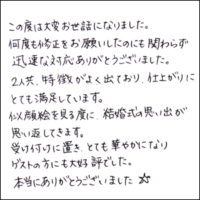 この度は大変お世話になりました。
何度も修正をお願いしたのにも関わらず
迅速な対応ありがとうございました。
2人共、特徴がよく出ており、仕上がりに
とても満足しています。
似顔絵を見る度に、結婚式の思い出が
思い返してきます。
受け付けに置き、とても華やかになり
ゲストの方にも大好評でした。
本当にありがとうございました☆